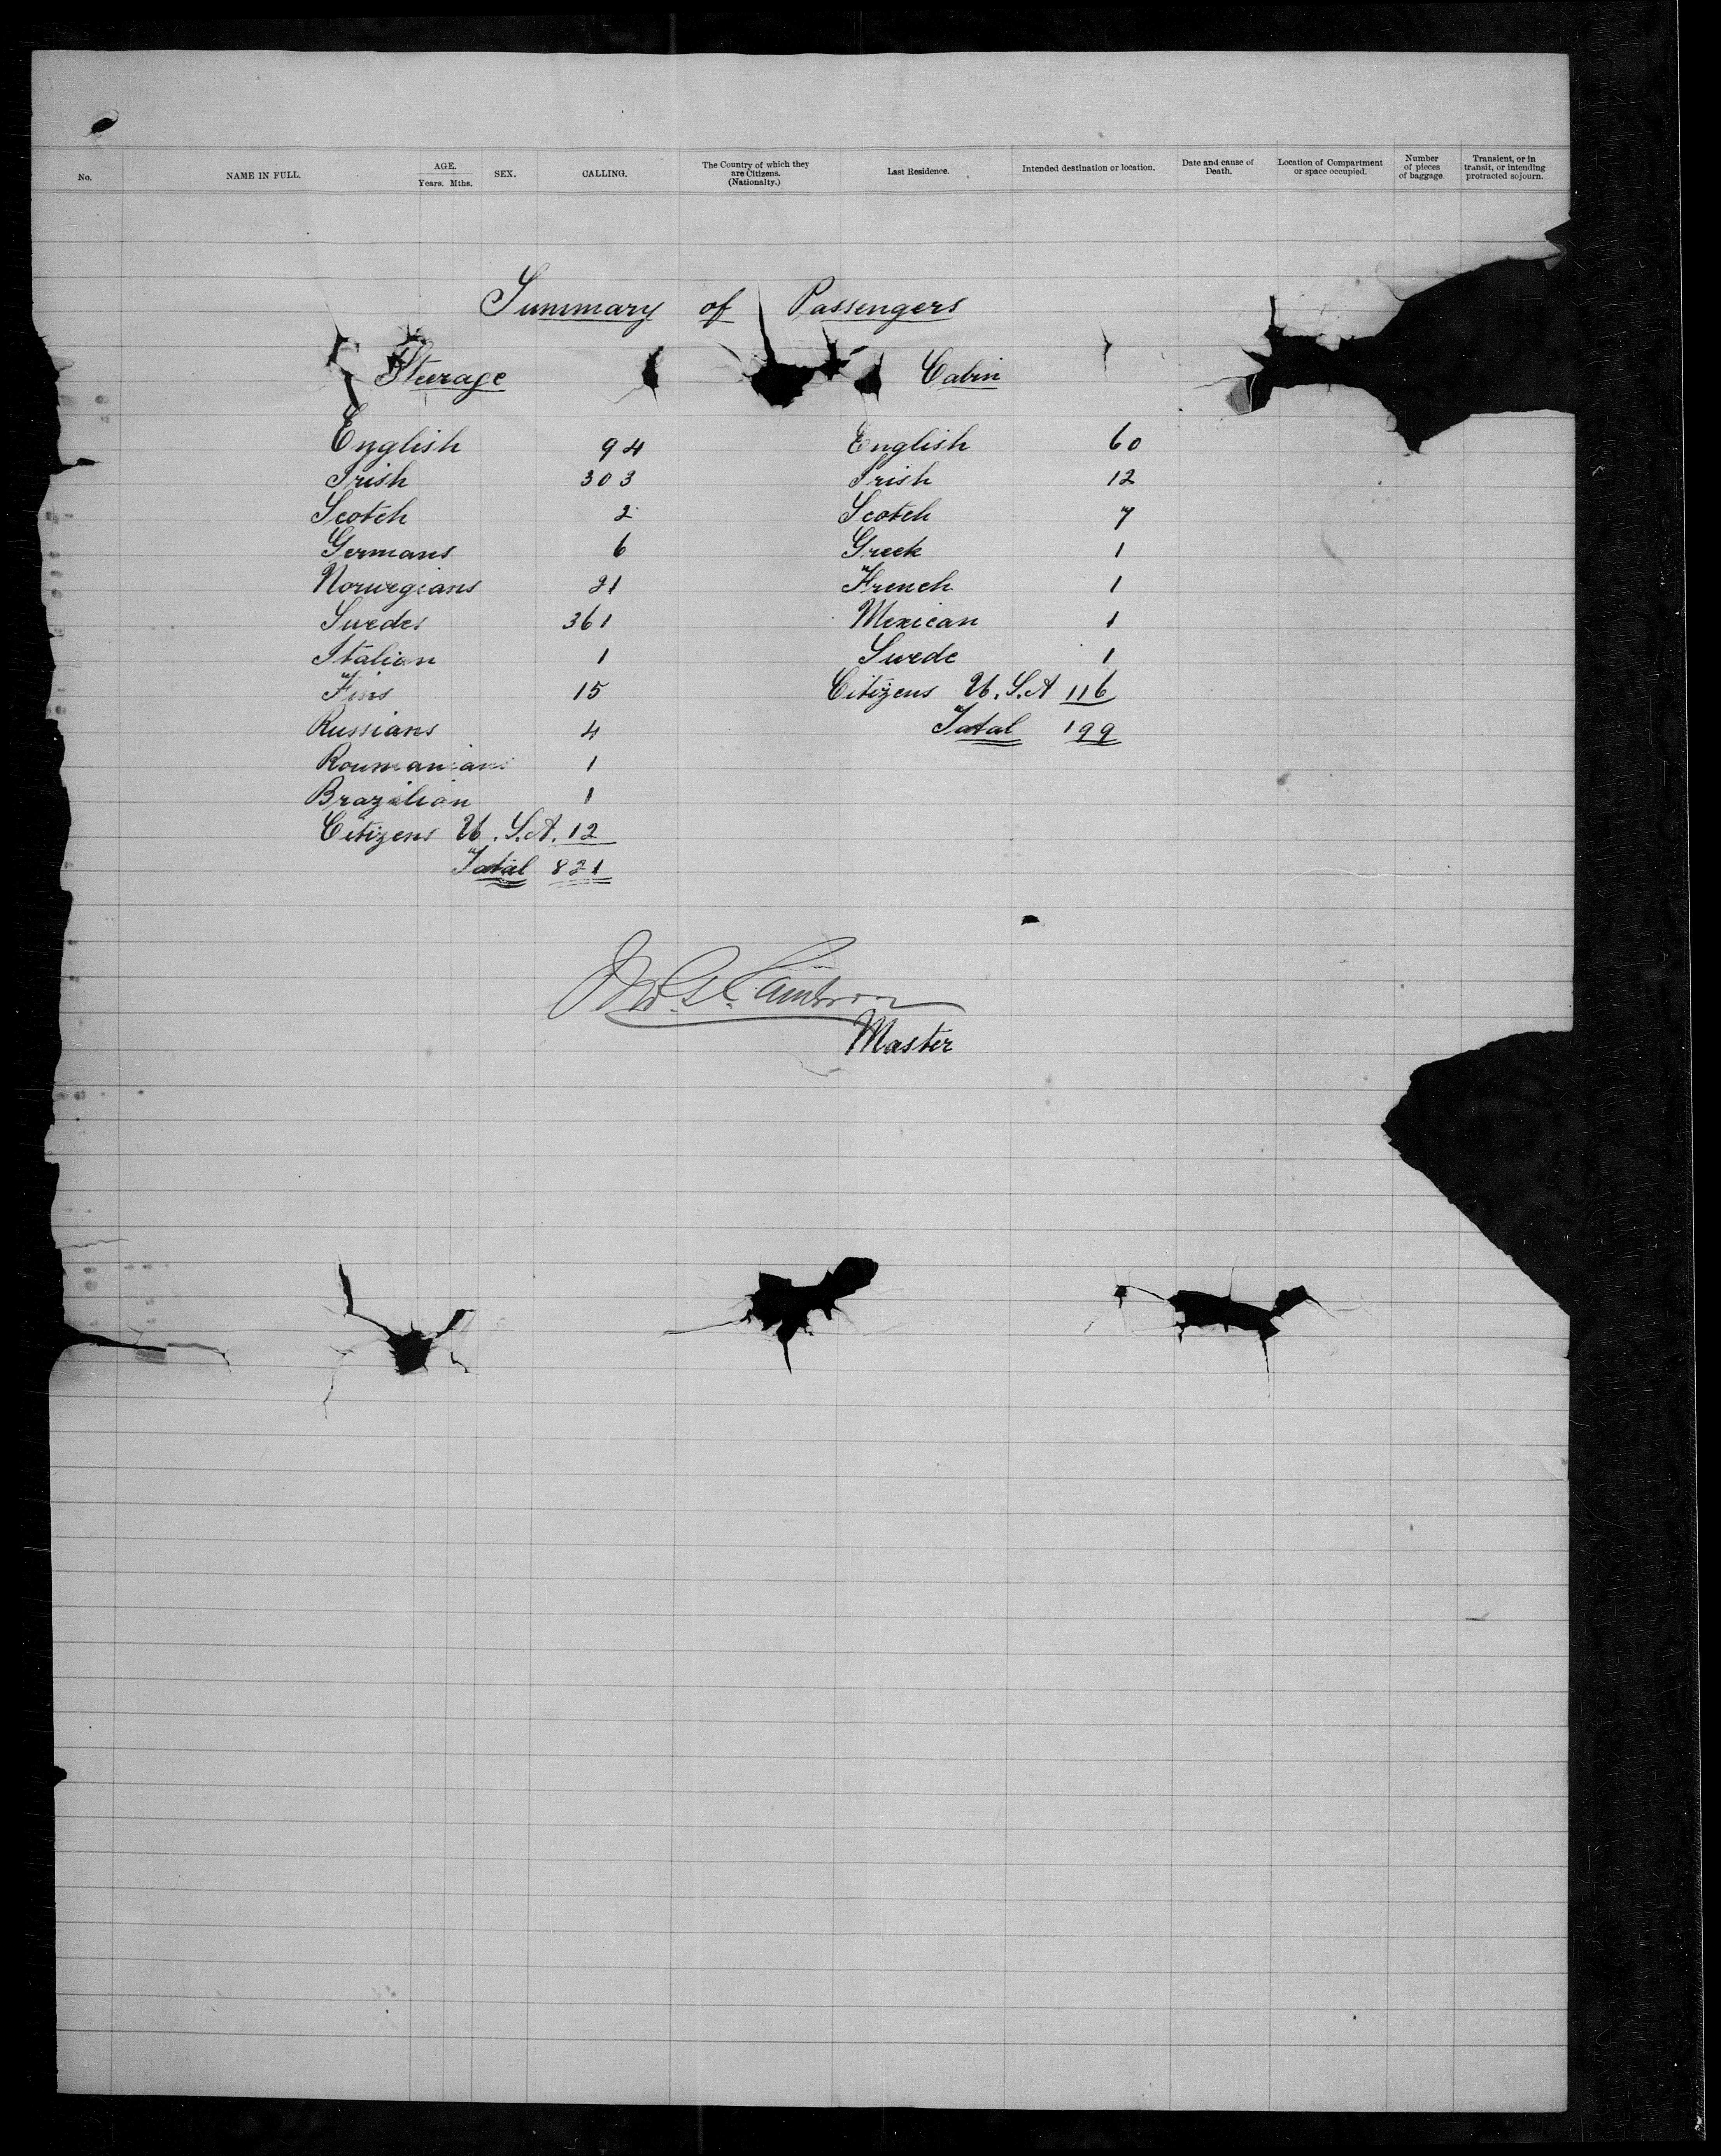 No. NAME IN FULL. AGE. Years. Mths. SEX. CALLING. The Country of which they are Citizens. (Nationalty.) Last Residence. Intended destination or location. Date and cause of Death. Location of Compartment or space occupied. Number of pieces of baggage. Transient, or in transit, or intending protracted sojourn.
Summary of Passengers
Steerage
English 94
Irish 303
Scotch 2
Germans 6
Norwegians 21
Swedes 361
Italian 1
Fins 15
Russians 4
Roumanians 1
Brazilian 1
Citizens U.S.A. 12
Total 821
Cabin
English 60
Irish 12
Scotch 7
Greek 1
French 1
Mexican 1
Swede 1
Citizens U.S.A 116
Total 199
Cameron
Master